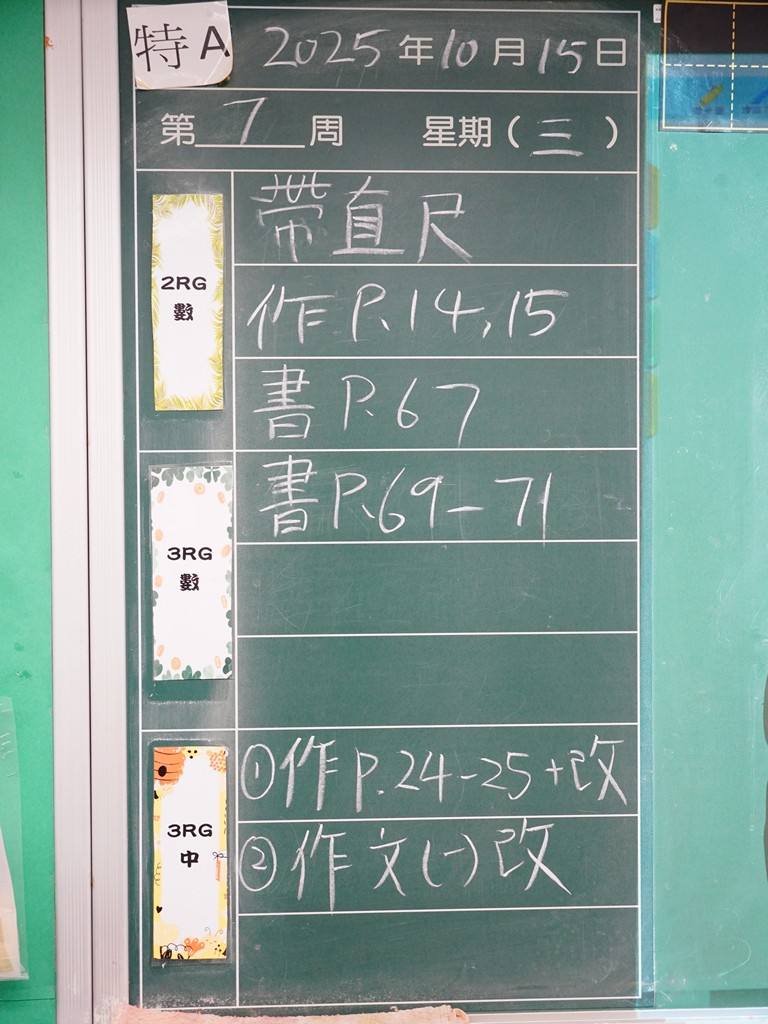 特A 2025年10月15日
第7周 星期(三)
2RG
數
帶直尺
作P.14,15
書P.67
3RG
數
書P.69-71
3RG
中
①作P.24-25+改
②作文(一)改